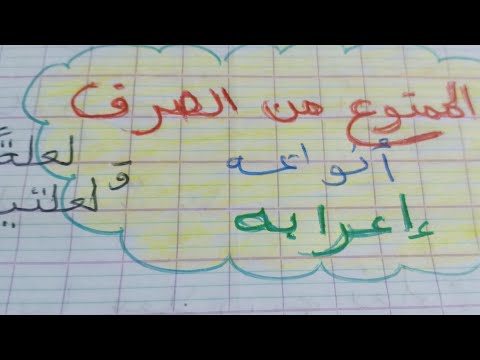 الممنوع من الصرف
أنواعه
إعرابه
لعلة
و لعلتين